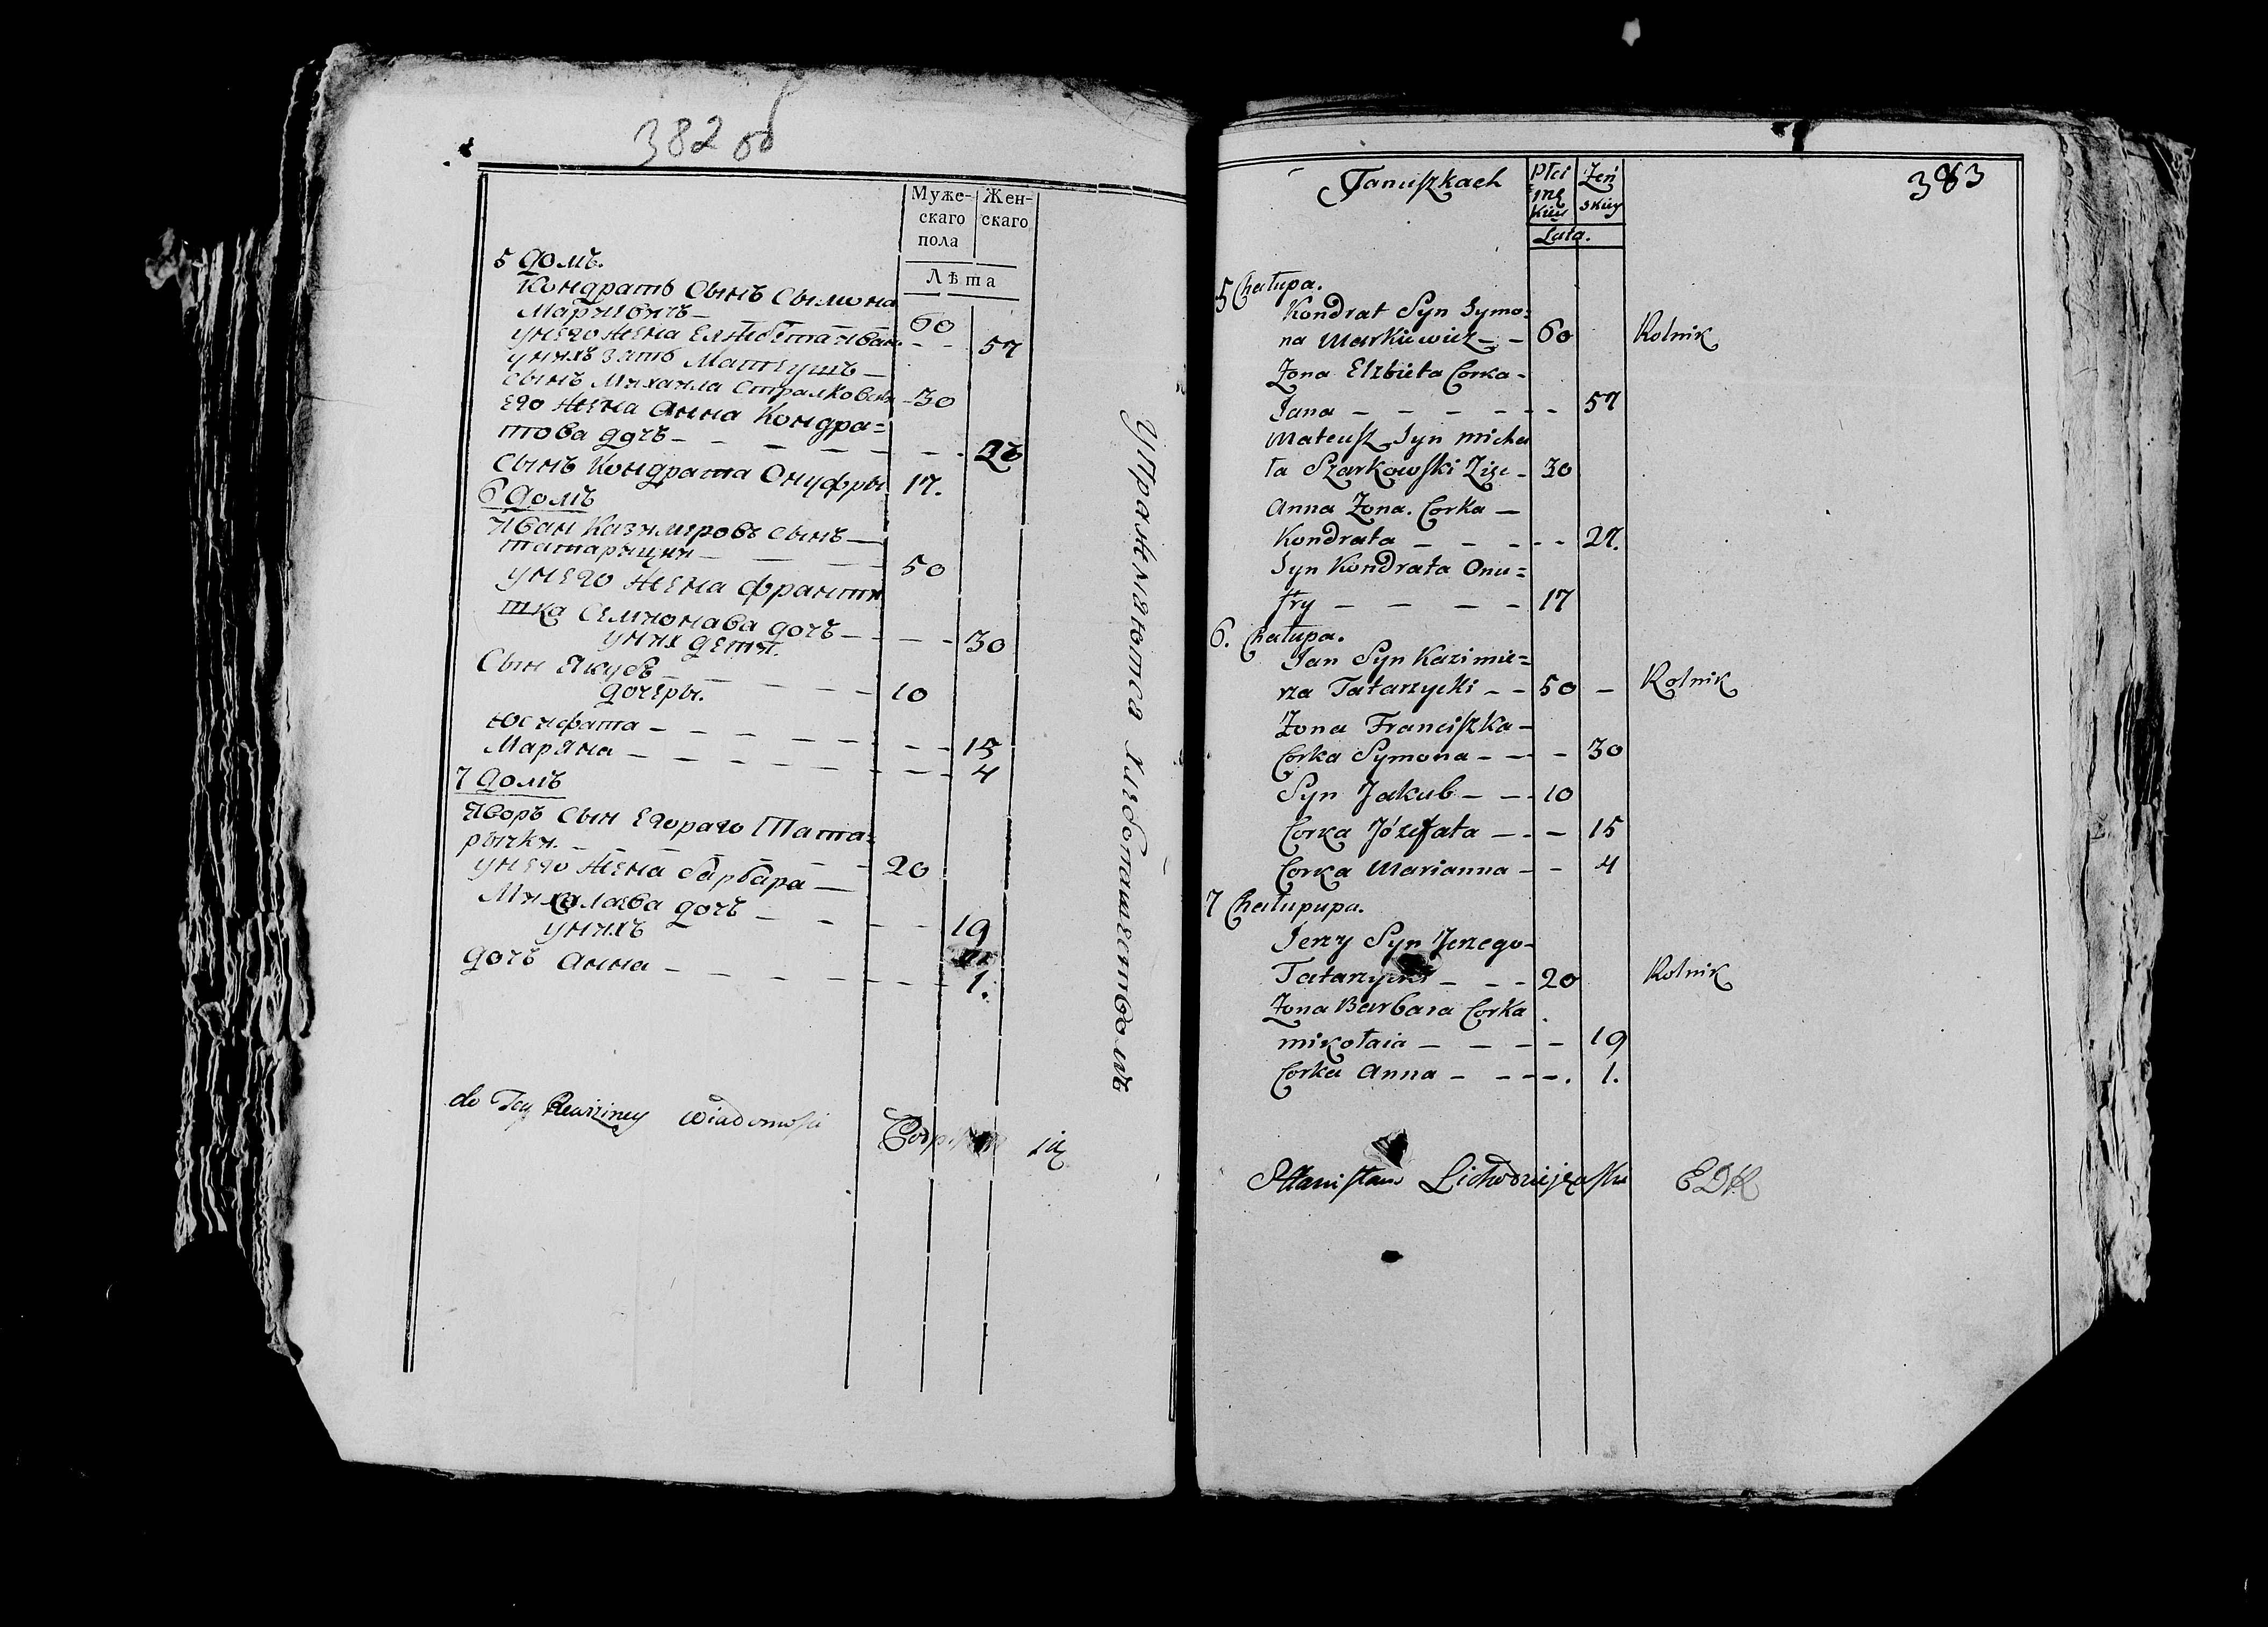 382 об
Муже-
скаго
пола
Жен-
скаго
Лѣта
5 Домъ.
Кондратъ Сынъ Сымона
60
унего жена Елжбета Иван
57
унихъ зять Матеушъ —
сынъ Михаила
30
его жена Анна Кондра=
това дочъ — — — —
Сынъ Кондрата Онуфры
17.
6 Домъ
Иван Казимировъ сынъ —
50
унего жена
Симионава дочъ — — —
30
уних дети.
Сын Якубъ — — — —
10
дочеры.
Юсифата — — — — —
15
Марѧна — — — — —
4
7 Домъ
сын Егораго Тата=
рыцки. — — — — —
20
унего жена барбара —
дочъ — — — —
19
унихъ
дочъ Анна — — — — —
1.
Упражняются хлебопашествомъ
do Tey Rewiziney wiadomosci się
383
Płci
męz
kiey
Zeń
skiey
Lata.
5 Chałupa.
Kondrat Syn Symo=
na Markiewicz — — 60 Rolnik
Zona Elzbieta Corka —
Jana — — — — — 57
Mateusz Syn Micha
ła Szarkowski Zięc — 30
Anna Zona. Corka —
Kondrata — — — — — 27.
Syn Kondrata Onu=
fry — — — — 17
6. Chałupa.
Jan Syn Kazimie=
rza Tatarzycki — — 50 — Rolnik
Zona Franciszka —
Corka Symona — — — 30
Syn Jakub — — 10
Corka Józefata — — — 15
Corka Marianna — — 4
7 Chałupupa.
Jerzy Syn Jerzego —
Tatarzycki — — — 20 Rolnik
Zona Barbara Corka
Mikołaia — — — — 19
Corka Anna — — — —. 1.
Stanisław EDK